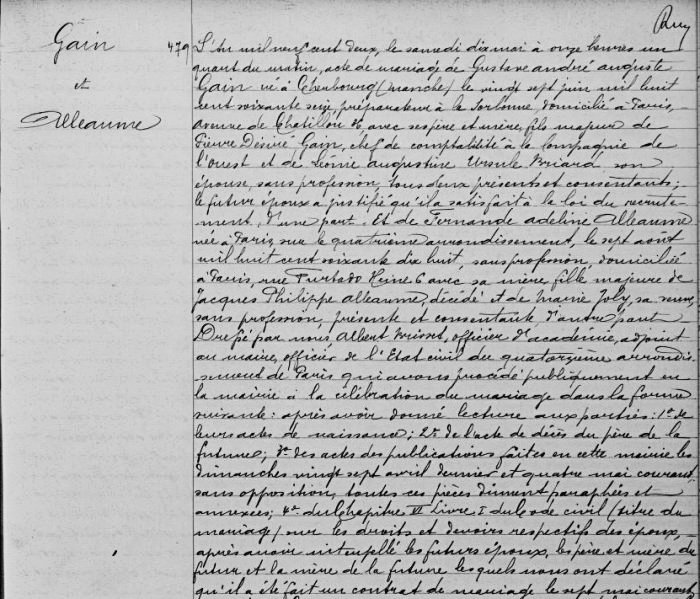 Gain
et
Alleaume
479
L'An mil neuf cent deux, le samedi dix mai à onze heures un
quart du matin, acte de mariage de Gustave andré auguste
Gain né à Cherbourg (manche) le vingt sept juin mil huit
cent soixante seize, préparateur à la Sorbonne, domicilié à Paris,
avenue de Chatillon 36, avec ses père et mère, fils majeur de
Pierre Désiré Gain, chef de comptabilité à la Compagnie de
l'ouest et de Léonie augustine Ursule Briard son
épouse, sans profession, tous deux présents et consentants;
le futur époux a justifié qu'il a satisfait à la loi du recrute-
ment, d'une part. Et de Fernande adeline Alleaume
née à Paris, sur le quatrième arrondissement, le sept août
mil huit cent soixante dix huit, sans profession, domiciliée
à Paris, rue Furtado Heine 6 avec sa mère, fille majeure de
Jacques Philippe Alleaume, décédé et de marie Joly, sa veuve,
sans profession, présente et consentante, d'autre part
Dressé par nous Albert Brisset, officier d'académie, adjoint
au maire, officier de l'Etat civil du quatorzième arrondis-
sement de Paris qui avons procédé publiquement en
la mairie à la célébration du mariage dans la forme
suivante: après avoir donné lecture aux parties: 1º de
leurs actes de naissance; 2º de l'acte de décès du père de la
future; 3º des actes des publications faites en cette mairie les
dimanches vingt sept avril dernier et quatre mai courant
sans opposition, toutes ces pièces dûment paraphées et
annexées; 4º du chapitre VI Livre I du Code civil (titre du
mariage) sur les droits et devoirs respectifs des époux,
après avoir interpellé les futurs époux, les père et mère du
futur et la mère de la future lesquels nous ont déclaré
qu'il a été fait un contrat de mariage le sept mai courant